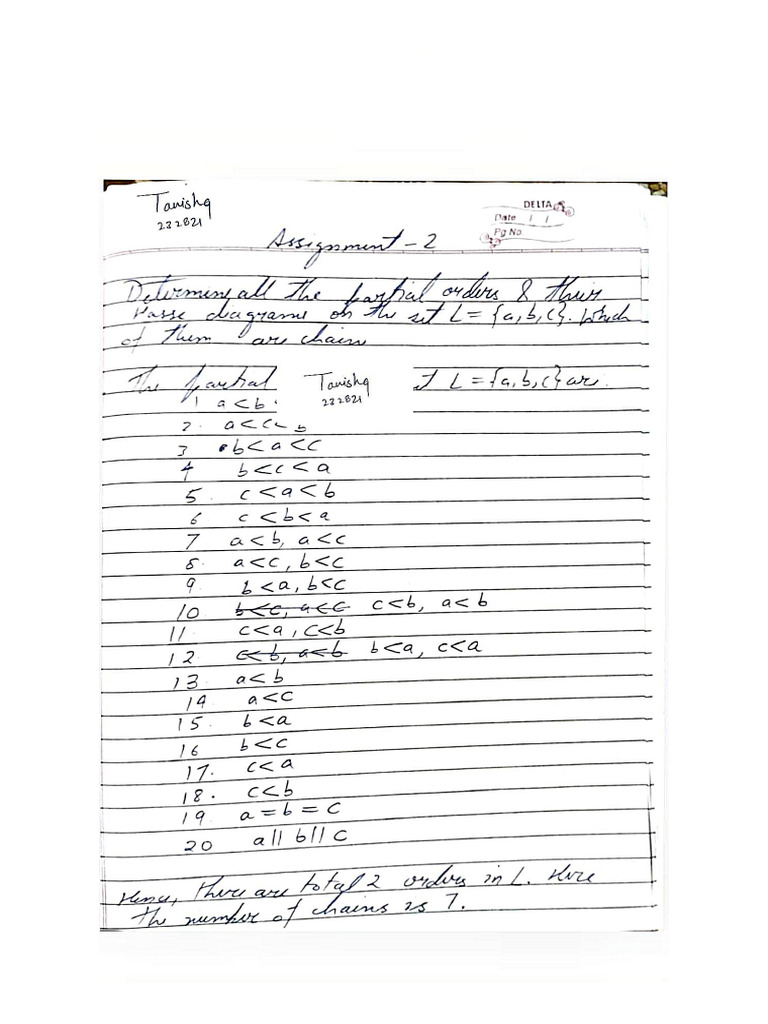 Tanishq
232821
DELTA
Date / /
Pg No
Assignment - 2
Determine all the partial orders & their
Hasse diagrams on the set L = {a, b, c}. Which
of them are chain
The partial Tanishq L = {a, b, c} are.
232821
1 a < b
2. a < c < b
3 b < a < c
4 b < c < a
5. c < a < b
6 c < b < a
7 a < b, a < c
8. a < c, b < c
9. b < a, b < c
10 b < c, a < c c < b, a < b
11. c < a, c < b
12 c < b, a < b b < a, c < a
13. a < b
14 a < c
15. b < a
16 b < c
17. c < a
18. c < b
19. a = b = c
20 a || b || c
Hence, there are total 2 orders in L. Here
the number of chains is 7.